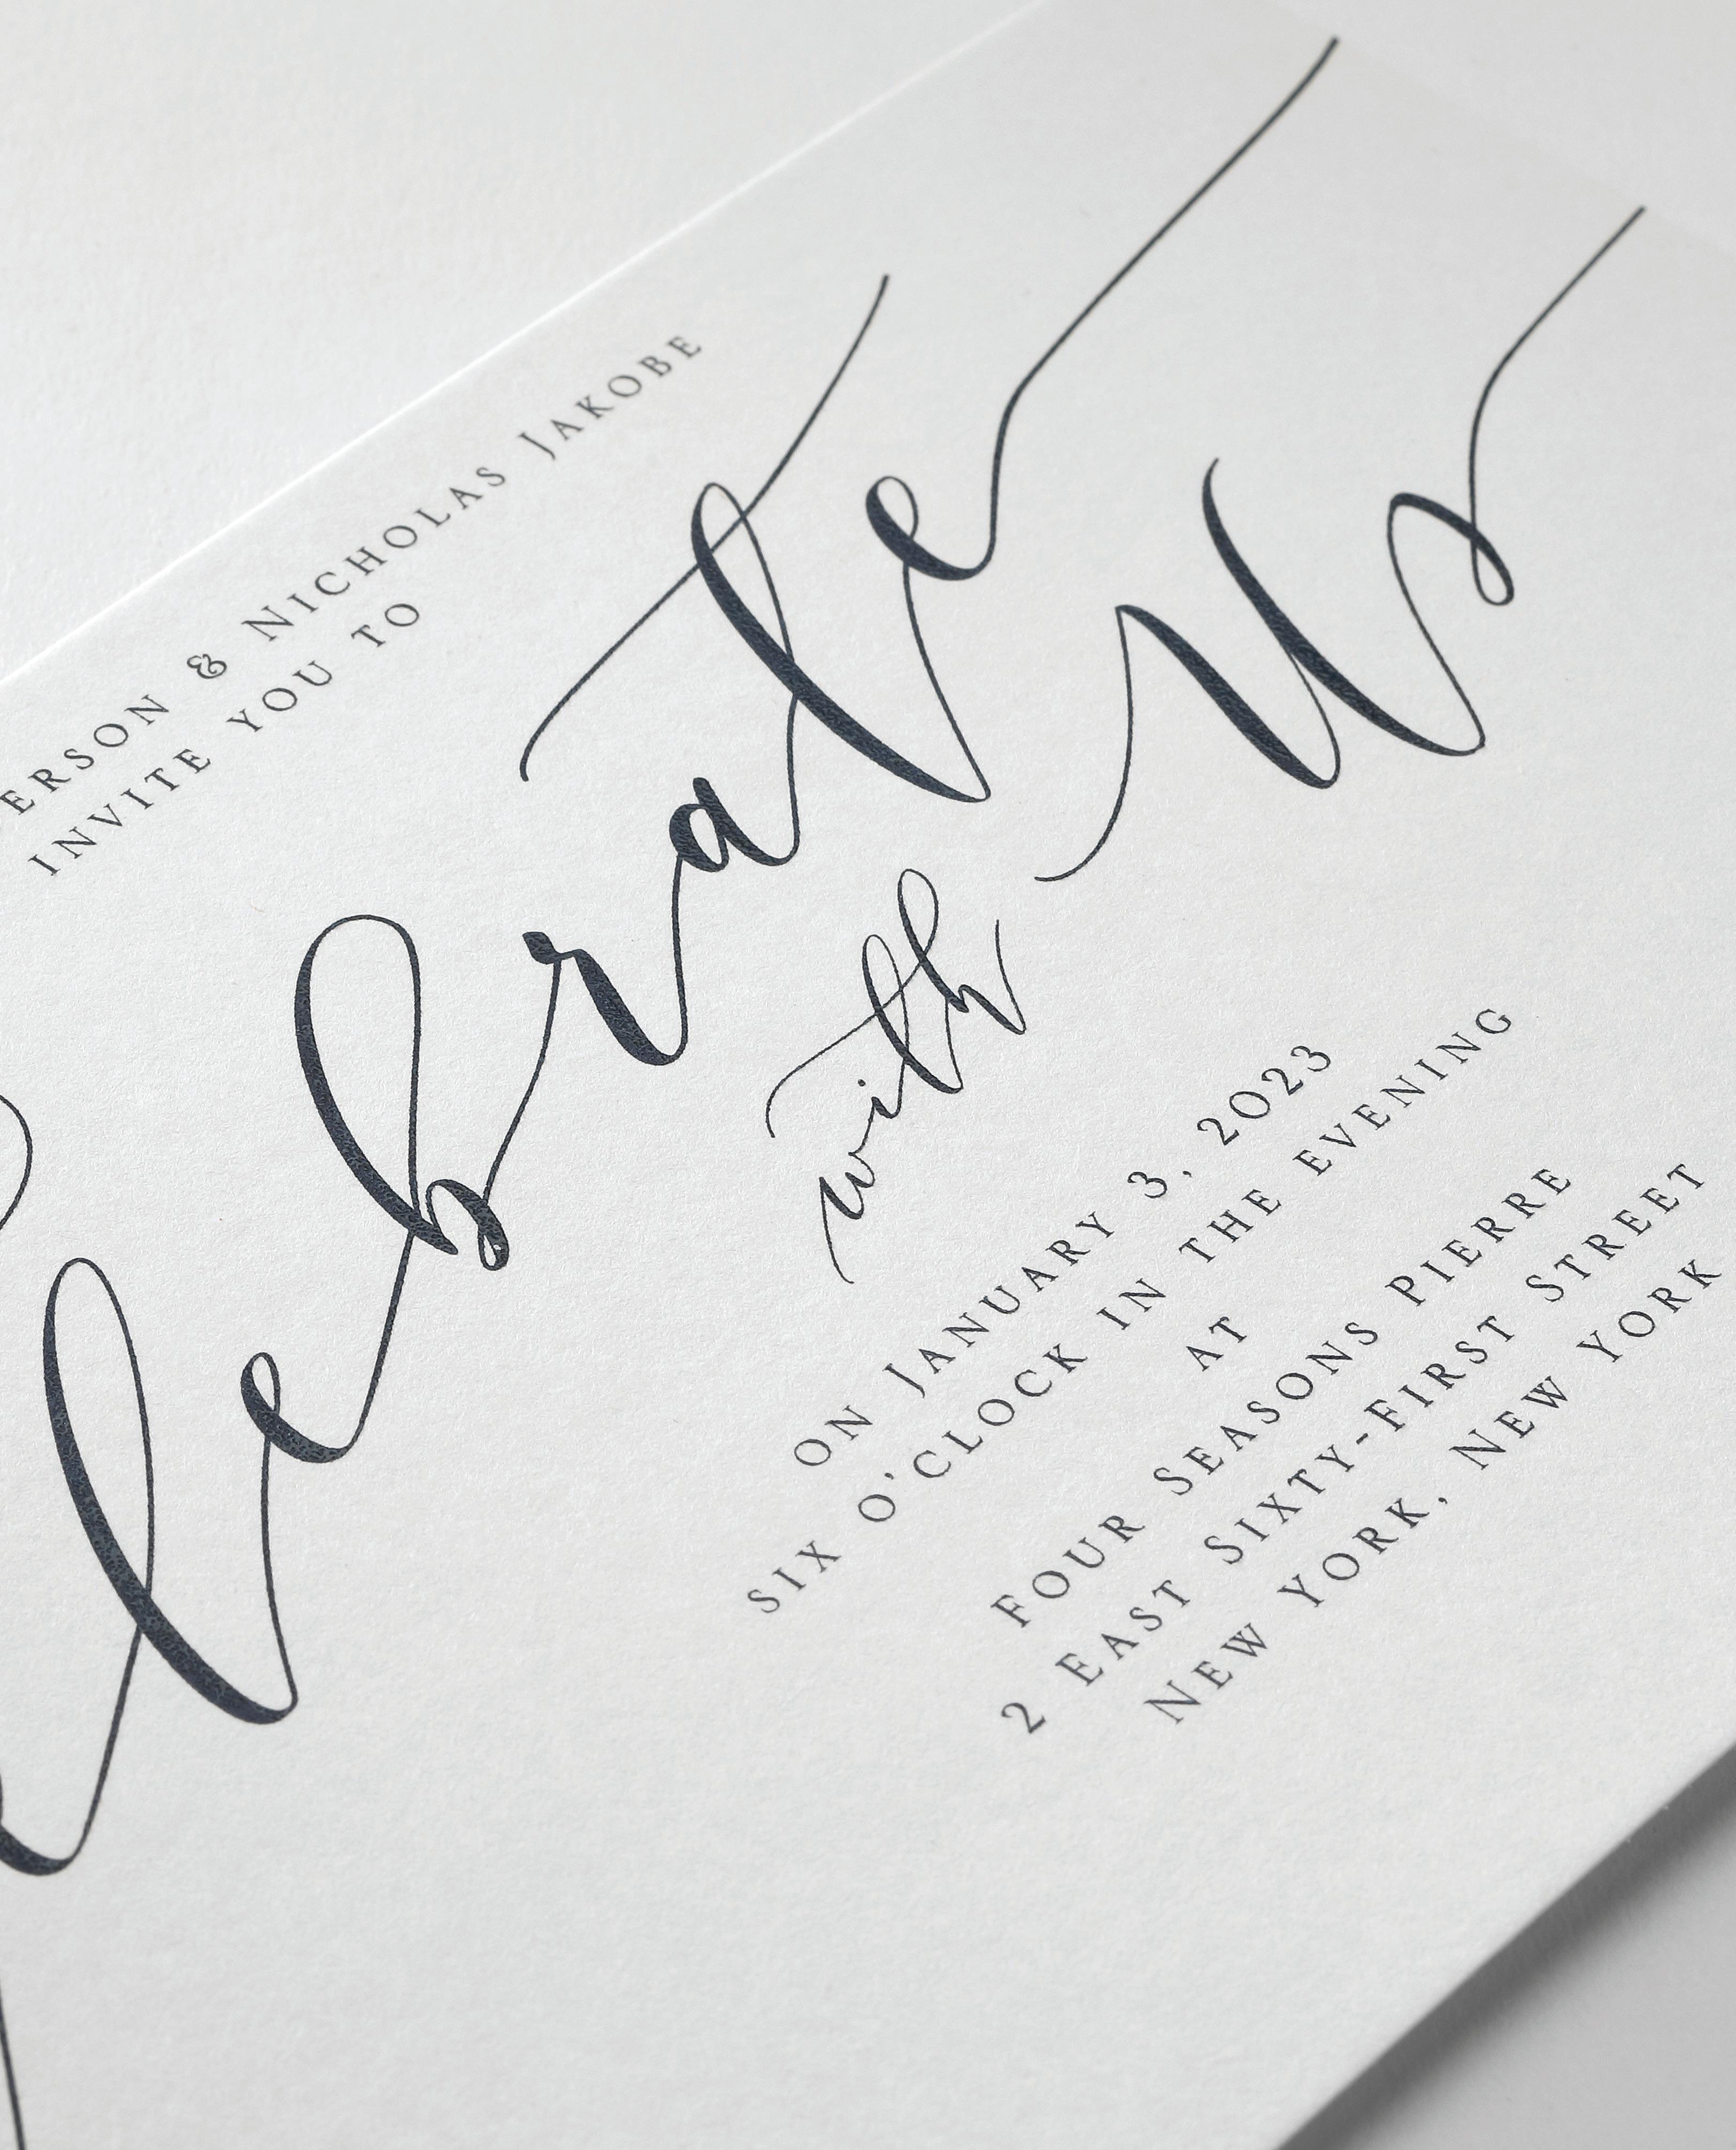 ERSON & NICHOLAS JAKOBE
INVITE YOU TO
elebrate
with Us
ON JANUARY 3, 2023
SIX O'CLOCK IN THE EVENING
AT
FOUR SEASONS PIERRE
2 EAST SIXTY-FIRST STREET
NEW YORK, NEW YORK